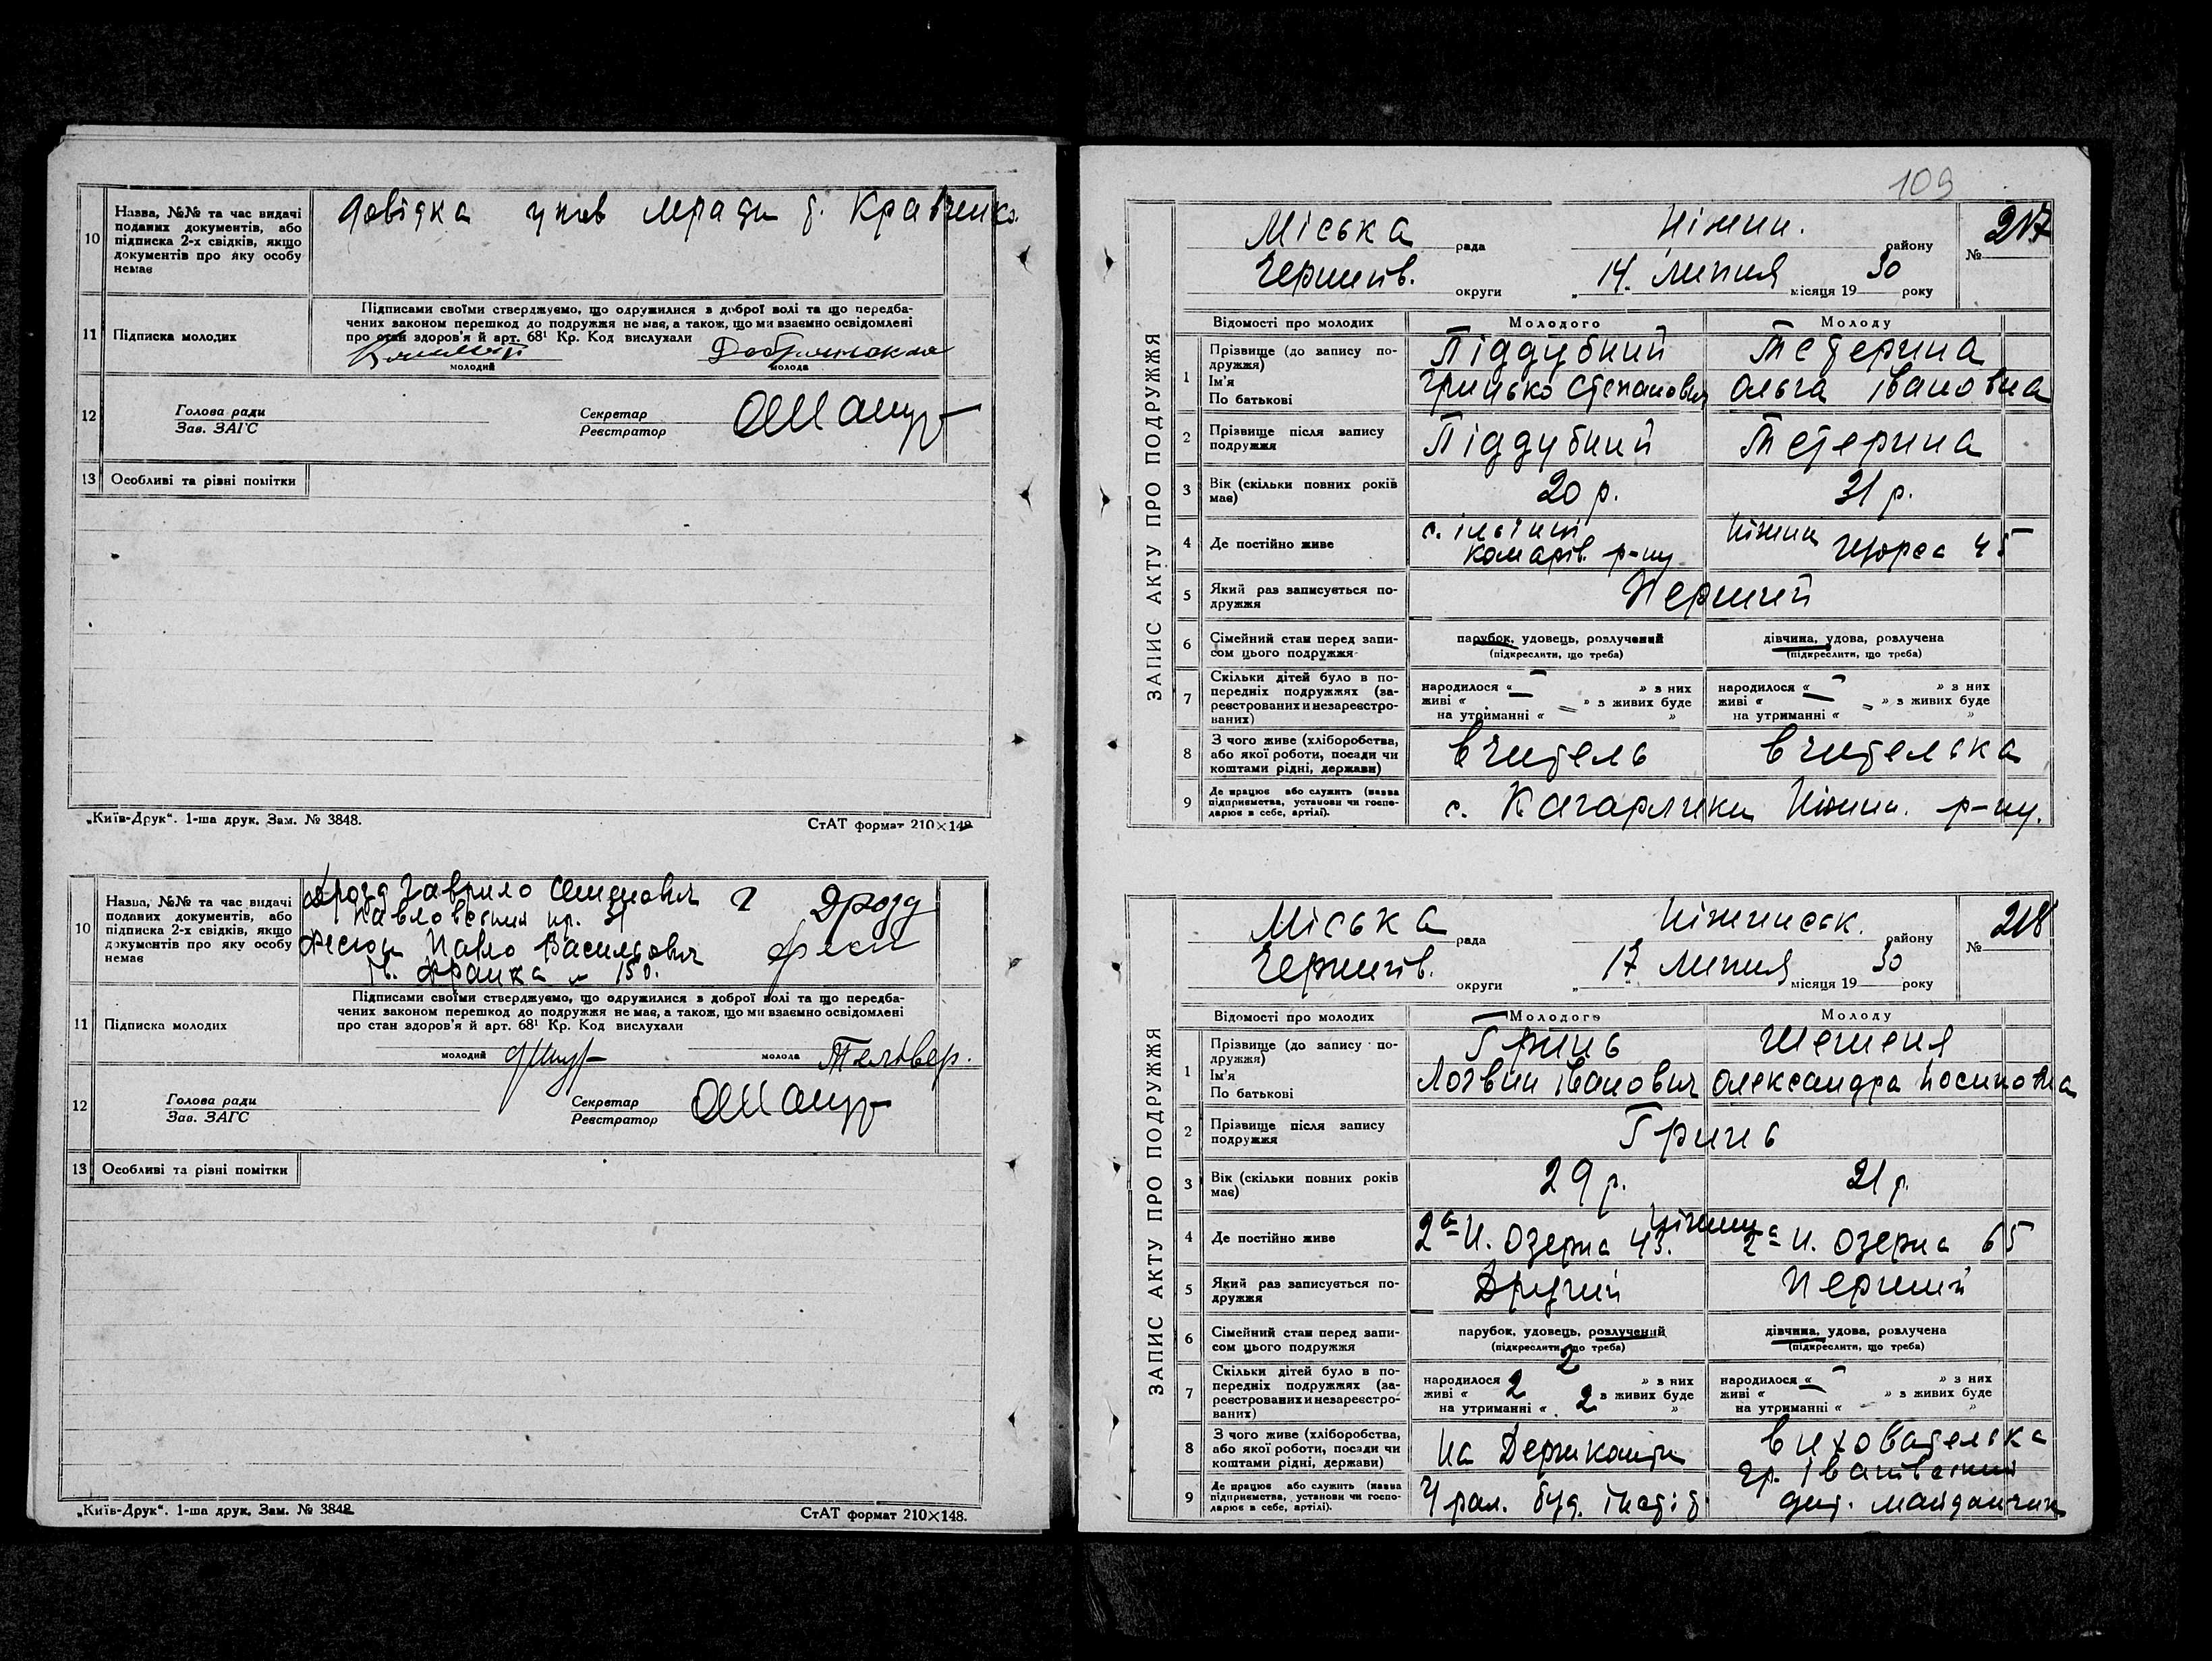 10
Назва, №№ та час видачі
поданих документів, або
підписка 2-х свідків, якщо
документів про яку особу
немає
довідка упов міради д. Кравченко.
11
Підписка молодих
Підписами своїми стверджуємо, що одружилися з доброї волі та що передба-
чених законом перешкод до подружжя не має, а також, що ми взаємно освідомлені
про стан здоров'я й арт. 68¹ Кр. Код вислухали
молодий
молода
12
Голова ради
Зав. ЗАГС
Секретар
Реєстратор
13 Особливі та різні помітки
„Київ-Друк“. 1-ша друк. Зам. № 3848.
СтАТ формат 210×148
10
Назва, №№ та час видачі
поданих документів, або
підписка 2-х свідків, якщо
документів про яку особу
немає
Дрозд Гаврило Семенович Дрозд
Павло Васильович
Ів. Франка 150.
11
Підписка молодих
Підписами своїми стверджуємо, що одружилися з доброї волі та що передба-
чених законом перешкод до подружжя не має, а також, що ми взаємно освідомлені
про стан здоров'я й арт. 68¹ Кр. Код вислухали
молодий
молода
12
Голова ради
Зав. ЗАГС
Секретар
Реєстратор
13 Особливі та різні помітки
„Київ-Друк“. 1-ша друк. Зам. № 3848
СтАТ формат 210×148.
109
ЗАПИС АКТУ ПРО ПОДРУЖЖЯ
Міська рада Ніжин. району № 217
Чернигів. округи „14. липня місяця 1930 року
Відомості про молодих Молодого Молоду
1
Прізвище (до запису по-
дружжя)
Ім'я
По батькові
Піддубний Тетерина
Грицько Степанович Ольга Івановна
2
Прізвище після запису
подружжя
Піддубний Тетерина
3
Вік (скільки повних років
має)
20 р. 21 р.
4
Де постійно живе
с. Ільїнці Ніжин
Комарів. р-ну Щорса 45
5
Який раз записується по-
дружжя
Перший
6
Сімейний стан перед запи-
сом цього подружжя
парубок, удовець, розлучений дівчина, удова, розлучена
(підкреслити, що треба) (підкреслити, що треба)
7
Скільки дітей було в по-
передніх подружжях (за-
реєстрованих и незареєстро-
ваних)
народилося « – » з них народилося « – » з них
живі « » з живих буде живі « » з живих буде
на утриманні « » на утриманні « »
8
З чого живе (хліборобства,
або якої роботи, посади чи
коштами рідні, держави)
вчитель вчителька
9
Де працює або служить (назва
підприємства, установи чи госпо-
дарює в себе, артілі).
с. Кагарлики Ніжин. р-ну.
ЗАПИС АКТУ ПРО ПОДРУЖЖЯ
Міська рада Ніжинськ. району № 218
Чернигів. округи „17 липня місяця 1930 року
Відомості про молодих Молодого Молоду
1
Прізвище (до запису по-
дружжя)
Ім'я
По батькові
Гринь Шешеня
Логвин Іванович Олександра Йосиповна
2
Прізвище після запису
подружжя
Гринь
3
Вік (скільки повних років
має)
29 р. 21 р.
4
Де постійно живе
Ніжин
2ª Н. Озерна 43. 2ª Н. Озерна 65
5
Який раз записується по-
дружжя
Другий Перший
6
Сімейний стан перед запи-
сом цього подружжя
парубок, удовець, розлучений дівчина, удова, розлучена
(підкреслити, що треба) (підкреслити, що треба)
7
Скільки дітей було в по-
передніх подружжях (за-
реєстрованих и незареєстро-
ваних)
2
народилося 2 » з них народилося « – » з них
живі « 2 з живих буде живі « » з живих буде
на утриманні « » на утриманні « »
8
З чого живе (хліборобства,
або якої роботи, посади чи
коштами рідні, держави)
на Держкошти вихователька
9
Де працює або служить (назва
підприємства, установи чи госпо-
дарює в себе, артілі).
Урал. буд. Інстіт
дит. майданчик